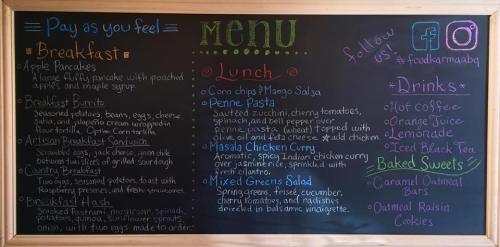 Pay as you feel
Breakfast
Apple Pancakes
A large fluffy pancake with poached
apples and maple syrup.
Breakfast Burrito
Seasoned potatoes, beans, eggs, cheese
and jalapeño cream wrapped in
flour tortilla. Option Corn tortilla
Artisan Breakfast Sandwich
Scrambled eggs, jack cheese, onion
between two slices of grilled sourdough
Country Breakfast
Two eggs, seasoned potatoes, toast with
Raspberry preserves, and fresh
Breakfast Hash
Smoked Pastrami, mushroom, spinach,
potatoes, quinoa, sunflower sprouts,
onion, with two eggs made to order
MENU
Lunch
Corn chips & Mango Salsa
Penne Pasta
Sautéed zucchini, cherry tomatoes,
spinach, and bell pepper over
penne pasta (wheat) topped with
olive oil and feta cheese *add chicken
Masala Chicken Curry
Aromatic, spicy Indian chicken curry
over jasmine rice, sprinkled with
fresh cilantro.
Mixed Greens Salad
Spring greens, frisee, cucumber,
cherry tomatoes, and radishes
drizzled in balsamic vinaigrette.
follow
us!
#foodkarmaabq
Drinks
Hot Coffee
Orange Juice
Lemonade
Iced Black Tea
Baked Sweets
Caramel Oatmeal
Bars
Oatmeal Raisin
Cookies